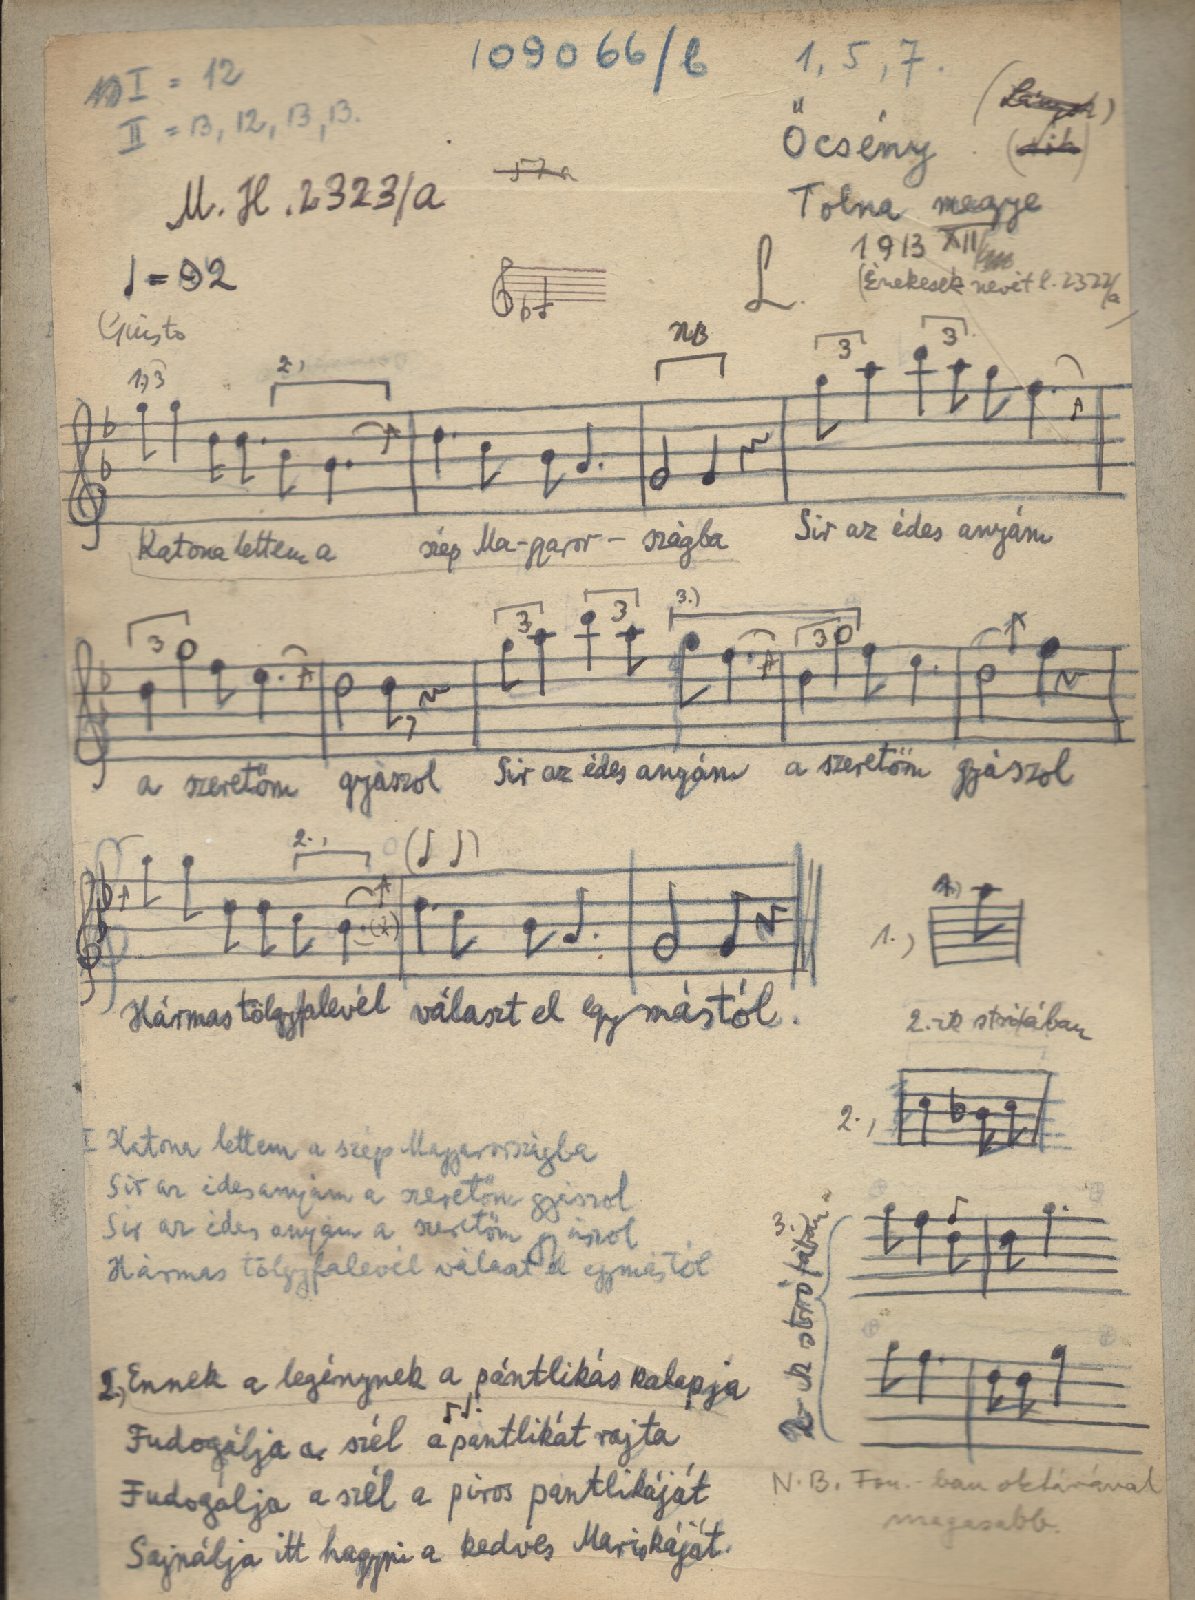 109066/b
1, 5, 7.
I = 12
II = 13, 12, 13, 13.
Őcsény
57a
M. H. 2323/a
Tolna megye
1913 XII
♩ = 92
L.
(Énekesek nevét l. 2322/a)
Giusto
NB
1,) 3
2.,
3
3
Katona lettem a szép Ma-gyaror-szágba Sir az édes anyám
3
3
3
3.)
3
a szeretőm gyászol Sir az édes anyám a szeretőm gyászol
2.,
Hármas tölgyfalevél választ el egymástól.
1.,
2.-ik strófában
2.,
I Katona lettem a szép Magyarországba
Sir az édesanyám a szeretőm gyászol
Sir az édes anyám a szeretőm gyászol
Hármas tölgyfalevél választ el egymástól
3.
2-ik strófában
2., Ennek a legénynek a pántlikás kalapja
Fudogálja a szél a pántlikát rajta
Fudogálja a szél a piros pántlikáját
Sajnálja itt hagyni a kedves Mariskáját.
N.B. Fon.-ban oktávával
magasabb.